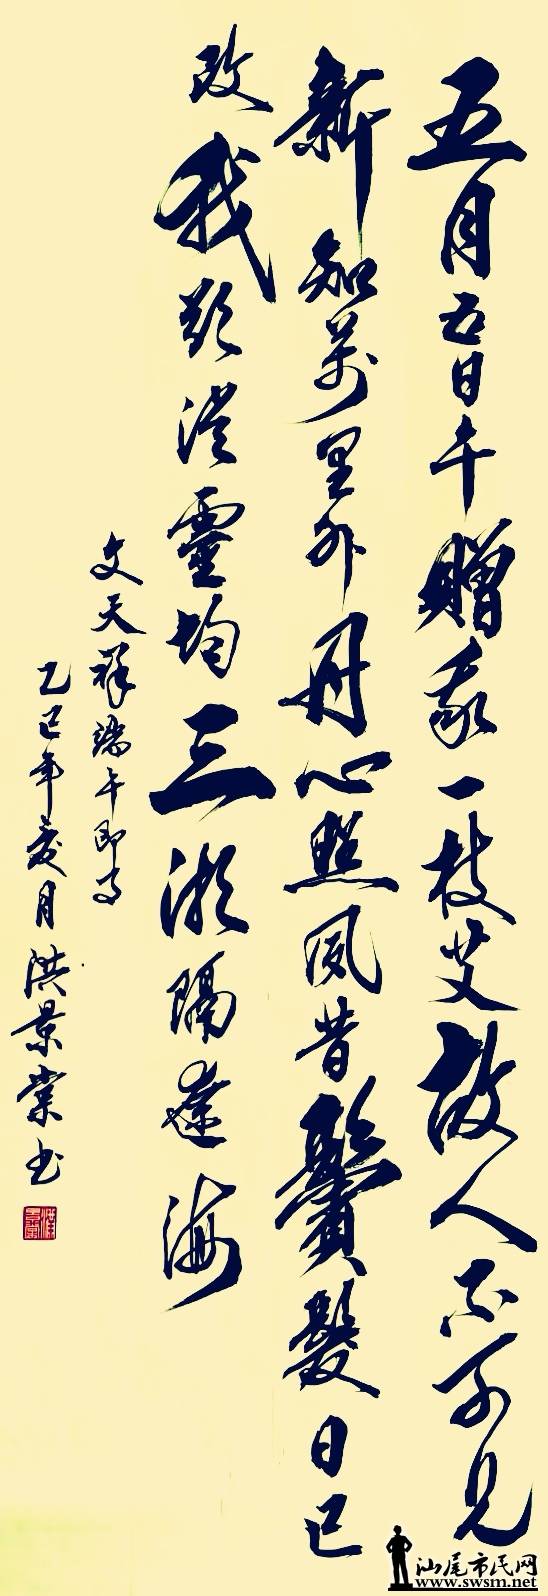 五月五日午贈我一枝艾故人不可見
新知萬里外丹心照夙昔鬢髮日已
改我欲從靈均三湘隔遼海
文天祥端午即事
乙巳年夏月洪景業书
汕尾市民网
www.swsm.net